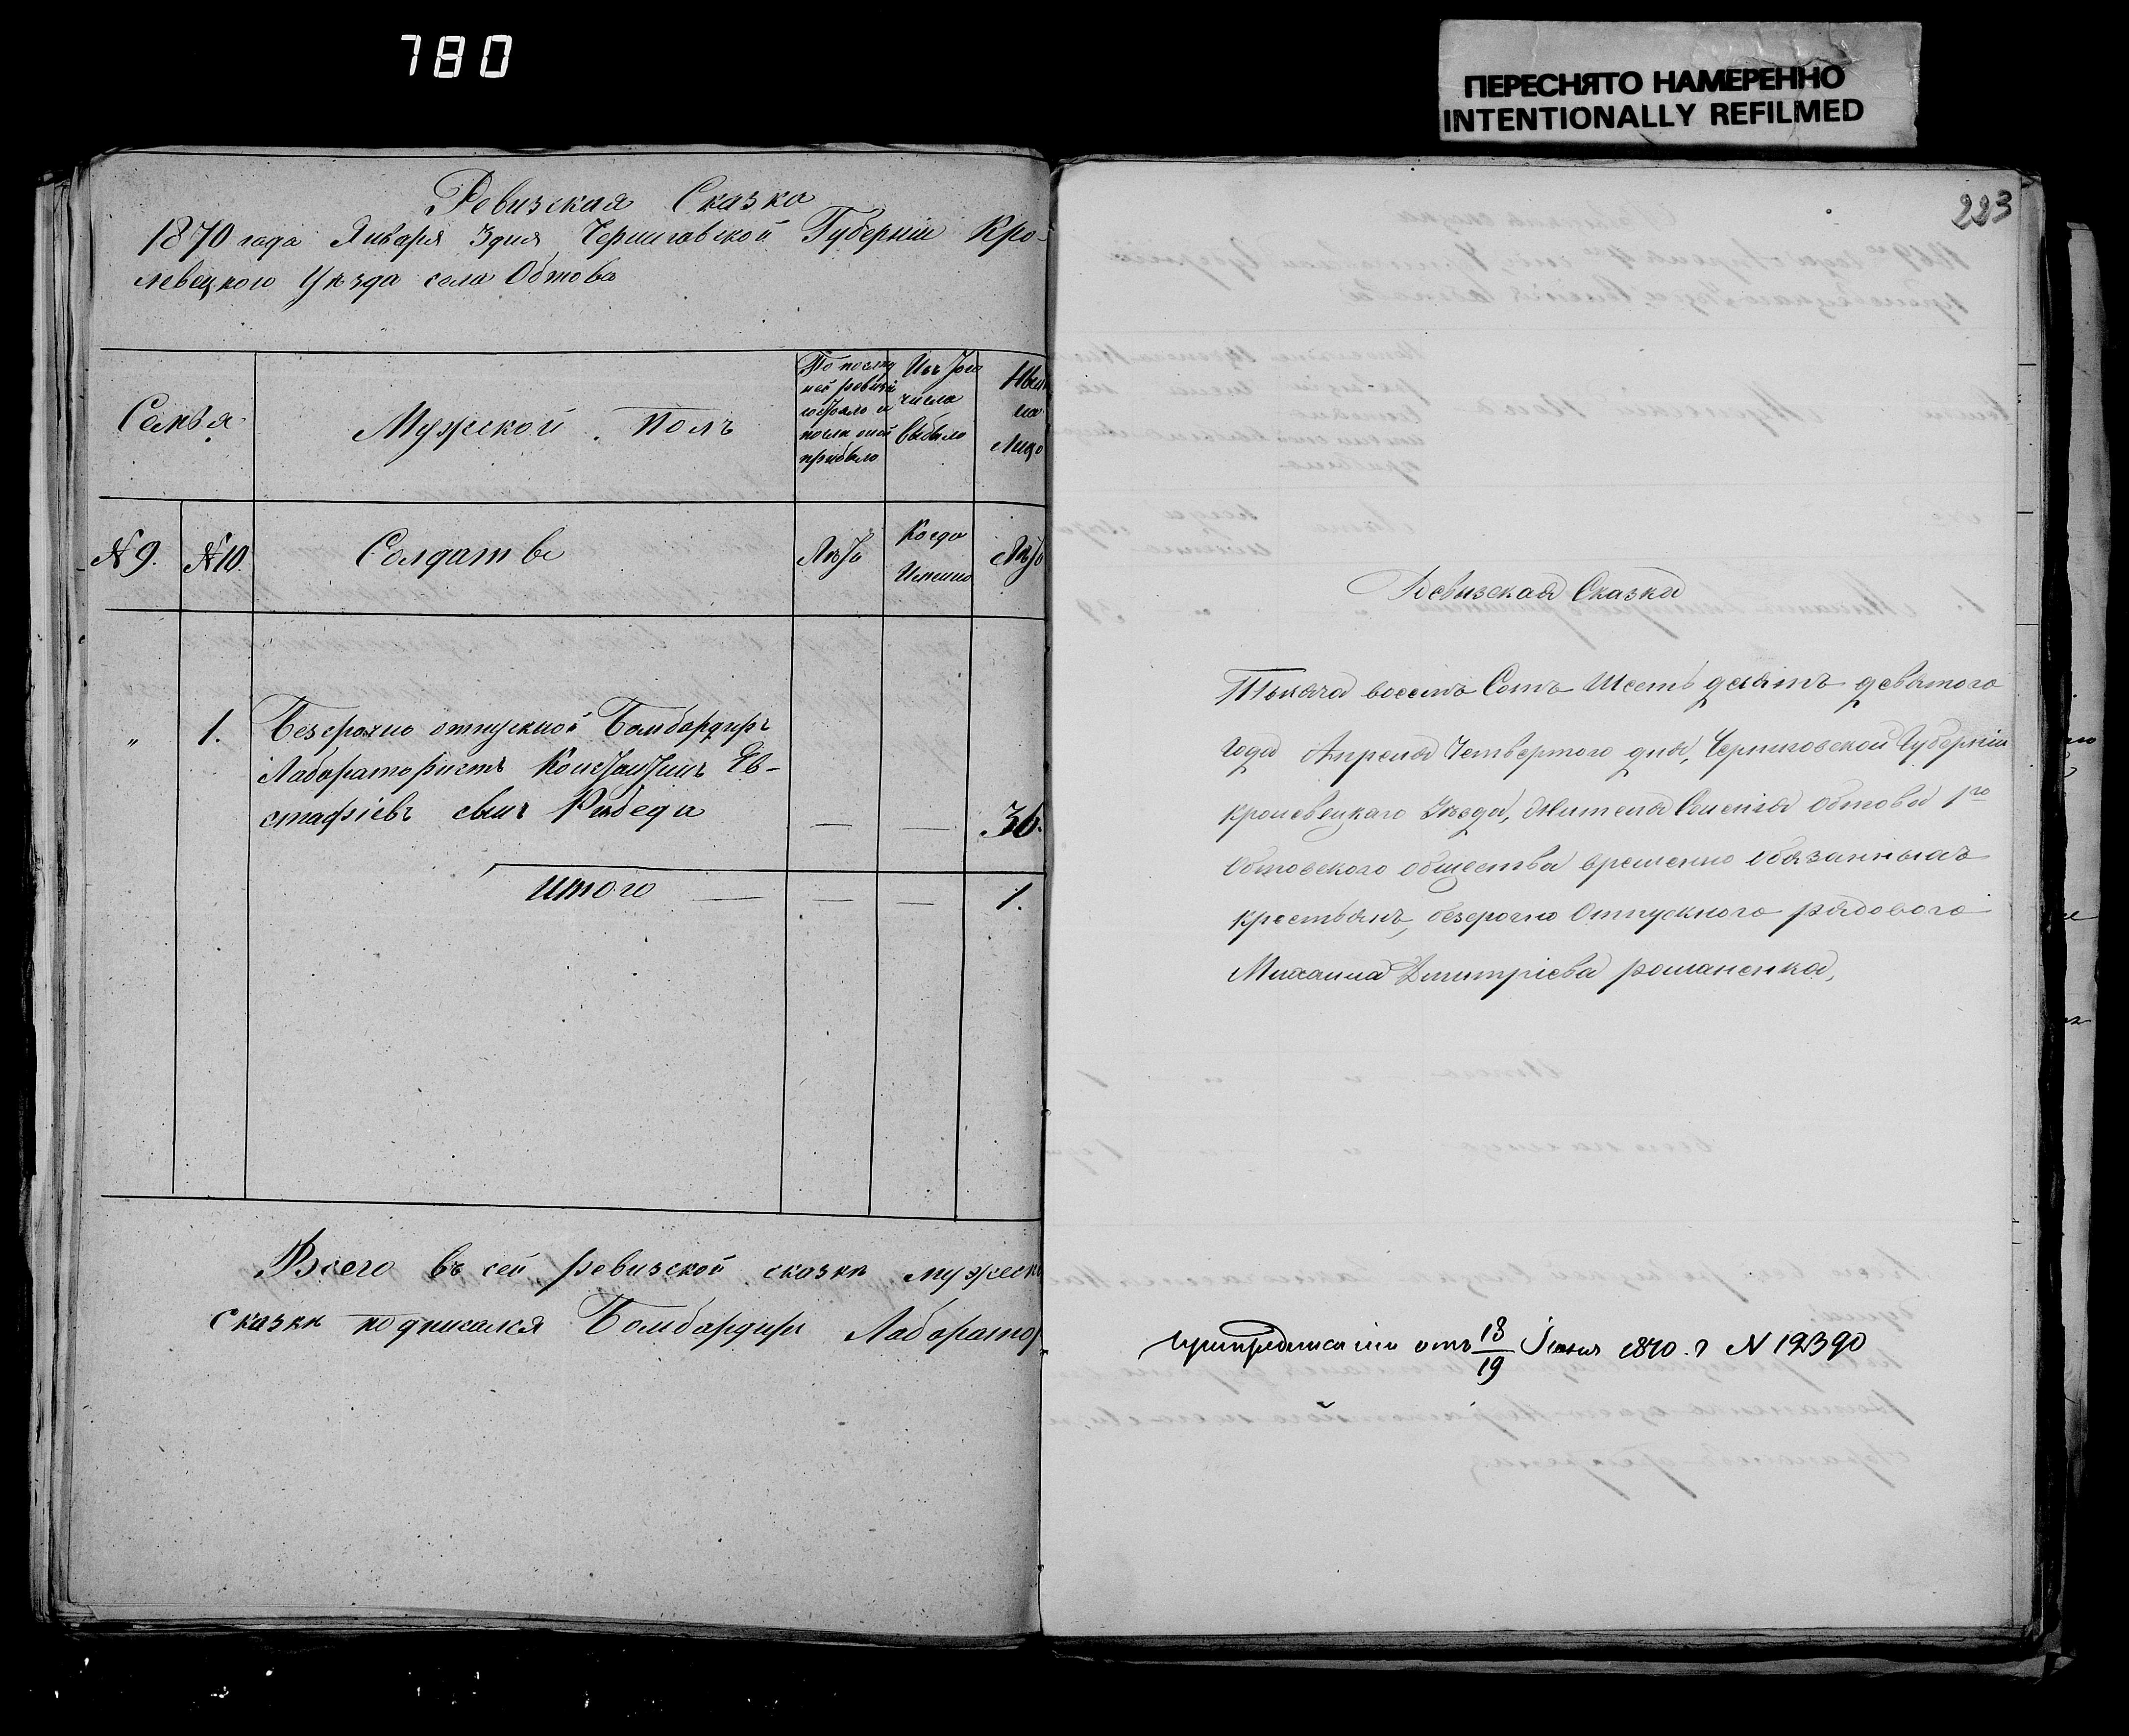 780
ПЕРЕСНЯТО НАМЕРЕННО
INTENTIONALLY REFILMED
Ревизская Сказка
1870 года Января 3 дня Черниговской Губерніи Кро-
левецкого Уѣзда села Обтова
Семья
Мужской Полъ
По послѣд
ней ревизіи
состояло и
послѣ оной
прибыло
Изъ того
числа
выбыло
Нын
на
Лицо
№ 9.
№ 10.
Солдатъ
Лѣтъ
Когда
Имянно
Лѣтъ
„ 1. Безсрочно отпускной Бомбардиръ
Лаборатористъ Константинъ Ев-
стафіевъ сынъ — — 36.
итого — — — 1.
Всего въ сей ревизской сказкѣ мужеск
Сказкѣ подписался Бомбардиръ Лаборатор
223
Ревизская Сказка
Тысяча восемь Сотъ Шесть десятъ девятого
Года Апреля Четвертого дня, Черниговской Губерніи
Кролевецкаго Уѣзда, Жителя Селенія Обтова го
Обтовского общества временно обязанныхъ
крестьянъ, безсрочно Отпускного рядового
Михаила Дмитріева романенка,
При предписаніи отъ 18/19 Іюня 1870. г № 12390